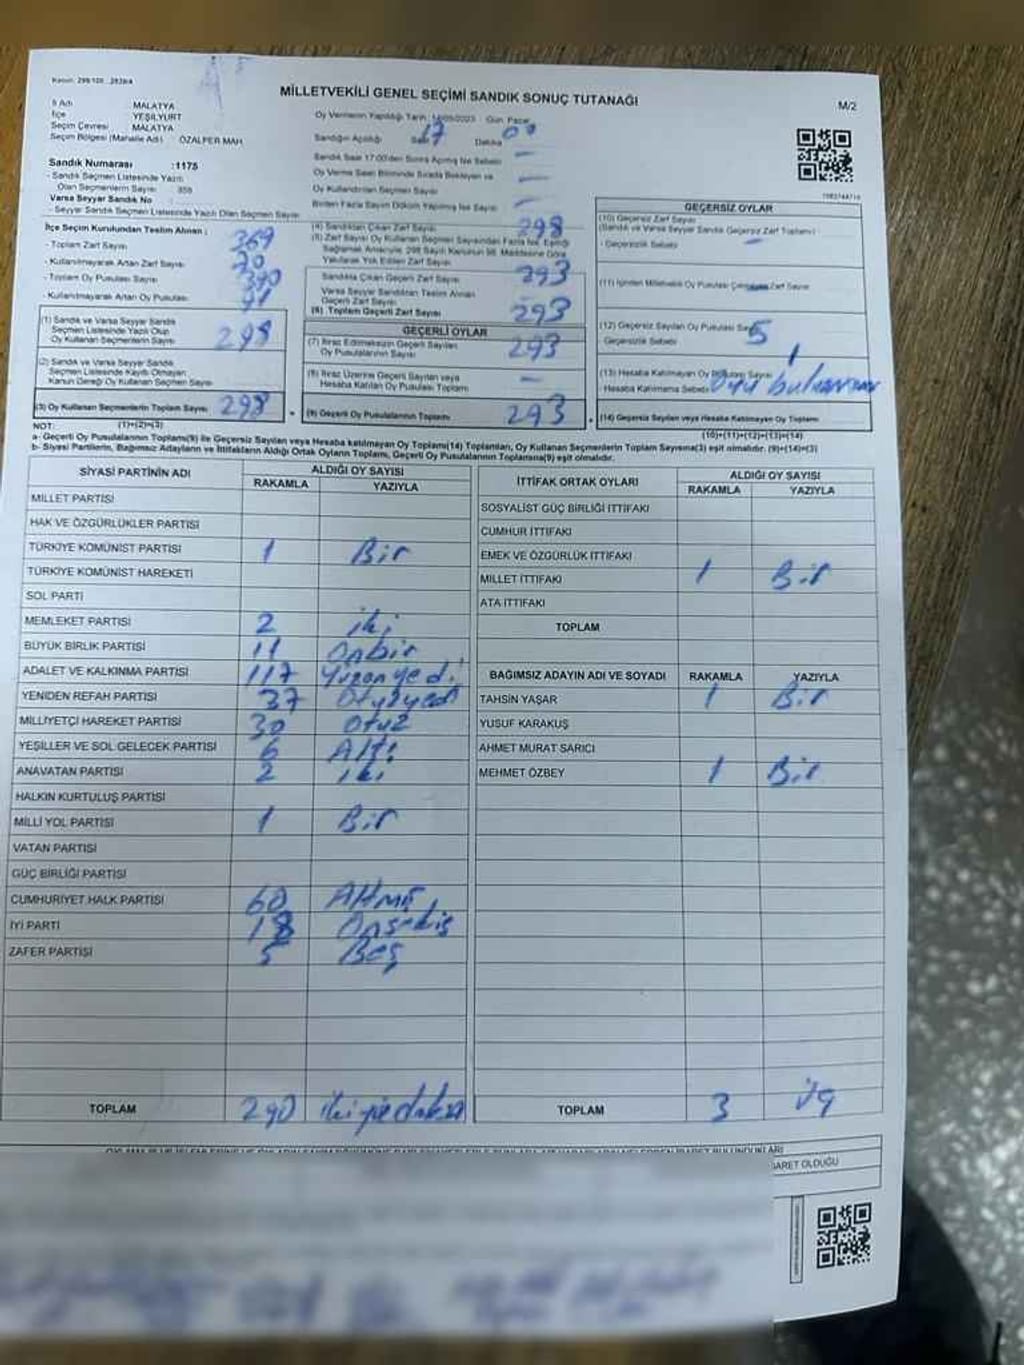 MİLLETVEKİLİ GENEL SEÇİMİ SANDIK SONUÇ TUTANAĞI
M/2
İl Adı : MALATYA
İlçe : YEŞİLYURT
Seçim Çevresi : MALATYA
Seçim Bölgesi (Mahalle Adı) : ÖZALPER MAH.
Sandık Numarası :1175
- Sandık Seçmen Listesinde Yazılı
Olan Seçmenlerin Sayısı
Varsa Seyyar Sandık No
- Seyyar Sandık Seçmen Listesinde Yazılı Olan Seçmen Sayısı
Oy Vermenin Yapıldığı Tarih: 14/05/2023 Gün Pazar
Sandığın Açıldığı Saat 17 Dakika 00
Sandık Saat 17:00'den Sonra Açılmış İse Sebebi
Oy Verme Saati Bitiminde Sırada Bekleyen ve
Oy Kullandırılan Seçmen Sayısı
Birden Fazla Sayım Döküm Yapılmış İse Sayısı
İlçe Seçim Kurulundan Teslim Alınan :
- Toplam Zarf Sayısı 369
- Kullanılmayarak Artan Zarf Sayısı
- Toplam Oy Pusulası Sayısı
- Kullanılmayarak Artan Oy Pusulası
(1) Sandık ve Varsa Seyyar Sandık
Seçmen Listesinde Yazılı Olup
Oy Kullanan Seçmen Sayısı 298
(2) Sandık ve Varsa Seyyar Sandık
Seçmen Listesinde Kayıtlı Olmayan
Kanun Gereği Oy Kullanan Seçmen Sayısı
(3) Oy Kullanan Seçmenlerin Toplam Sayısı 298
(1)+(2)=(3)
(4) Sandıktan Çıkan Zarf Sayısı 298
(5) Zarf Sayısı Oy Kullanan Seçmen Sayısından Fazla İse, Eşitliği
Sağlamak Amacıyla, 298 Sayılı Kanunun 98. Maddesine Göre
Yakılarak Yok Edilen Zarf Sayısı
Sandıkta Çıkan Geçerli Zarf Sayısı 293
Varsa Seyyar Sandıktan Teslim Alınan
Geçerli Zarf Sayısı
(6) Toplam Geçerli Zarf Sayısı 293
GEÇERLİ OYLAR
(7) İtiraz Edilmeksizin Geçerli Sayılan
Oy Pusulalarının Sayısı 293
(8) İtiraz Üzerine Geçerli Sayılan veya
Hesaba Katılan Oy Pusulası Toplamı
(9) Geçerli Oy Pusulalarının Toplamı 293
GEÇERSİZ OYLAR
(10) Geçersiz Zarf Sayısı
(Sandık ve Varsa Seyyar Sandık Geçersiz Zarf Toplamı)
- Geçersizlik Sebebi
(11) İçinden Milletvekili Oy Pusulası Çıkmayan Zarf Sayısı
(12) Geçersiz Sayılan Oy Pusulası Sayısı 5
Geçersizlik Sebebi
(13) Hesaba Katılmayan Oy Pusulası Sayısı
Hesaba Katılmama Sebebi
(14) Geçersiz Sayılan veya Hesaba Katılmayan Oy Toplamı
(10)+(11)+(12)+(13)=(14)
NOT:
a- Geçerli Oy Pusulaları Toplamı(9) ile Geçersiz Sayılan veya Hesaba katılmayan Oy Toplamı(14) Toplamları, Oy Kullanan Seçmenlerin Toplam Sayısına(3) eşit olmalıdır. (9)+(14)=(3)
b- Siyasi Partilerin, Bağımsız Adayların ve İttifakların Aldığı Ortak Oyların Toplamı, Geçerli Oy Pusulalarının Toplamına(9) eşit olmalıdır.
SİYASİ PARTİNİN ADI ALDIĞI OY SAYISI
RAKAMLA YAZIYLA
MİLLET PARTİSİ
HAK VE ÖZGÜRLÜKLER PARTİSİ
TÜRKİYE KOMÜNİST PARTİSİ 1 Bir
TÜRKİYE KOMÜNİST HAREKETİ
SOL PARTİ
MEMLEKET PARTİSİ 2 iki
BÜYÜK BİRLİK PARTİSİ 11 Onbir
ADALET VE KALKINMA PARTİSİ 117 Yüzonyedi
YENİDEN REFAH PARTİSİ 37 Otuzyedi
MİLLİYETÇİ HAREKET PARTİSİ 30 Otuz
YEŞİLLER VE SOL GELECEK PARTİSİ 6 Altı
ANAVATAN PARTİSİ 2 iki
HALKIN KURTULUŞ PARTİSİ
MİLLİ YOL PARTİSİ 1 Bir
VATAN PARTİSİ
GÜÇ BİRLİĞİ PARTİSİ
CUMHURİYET HALK PARTİSİ 60 Altmış
İYİ PARTİ 18 Onsekiz
ZAFER PARTİSİ 5 Beş
TOPLAM 290
İTTİFAK ORTAK OYLARI ALDIĞI OY SAYISI
RAKAMLA YAZIYLA
SOSYALİST GÜÇ BİRLİĞİ İTTİFAKI
CUMHUR İTTİFAKI
EMEK VE ÖZGÜRLÜK İTTİFAKI
MİLLET İTTİFAKI 1 Bir
ATA İTTİFAKI
TOPLAM
BAĞIMSIZ ADAYIN ADI VE SOYADI RAKAMLA YAZIYLA
TAHSİN YAŞAR 1 Bir
YUSUF KARAKUŞ
AHMET MURAT SARICI
MEHMET ÖZBEY 1 Bir
TOPLAM 3 üç
İBARET OLDUĞU